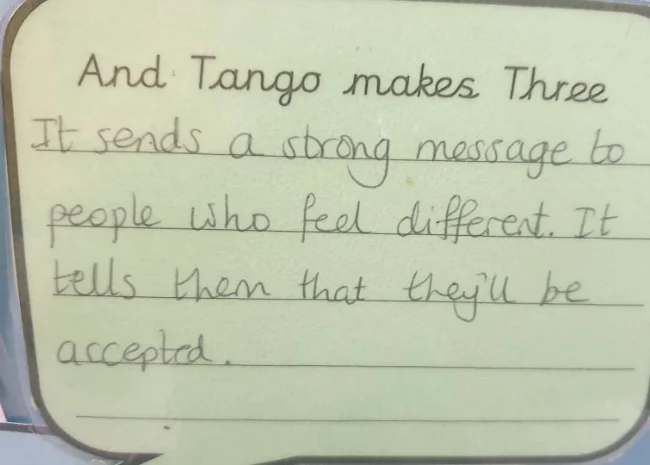 And Tango makes Three
It sends a strong message to
people who feel different. It
tells them that they'll be
accepted.